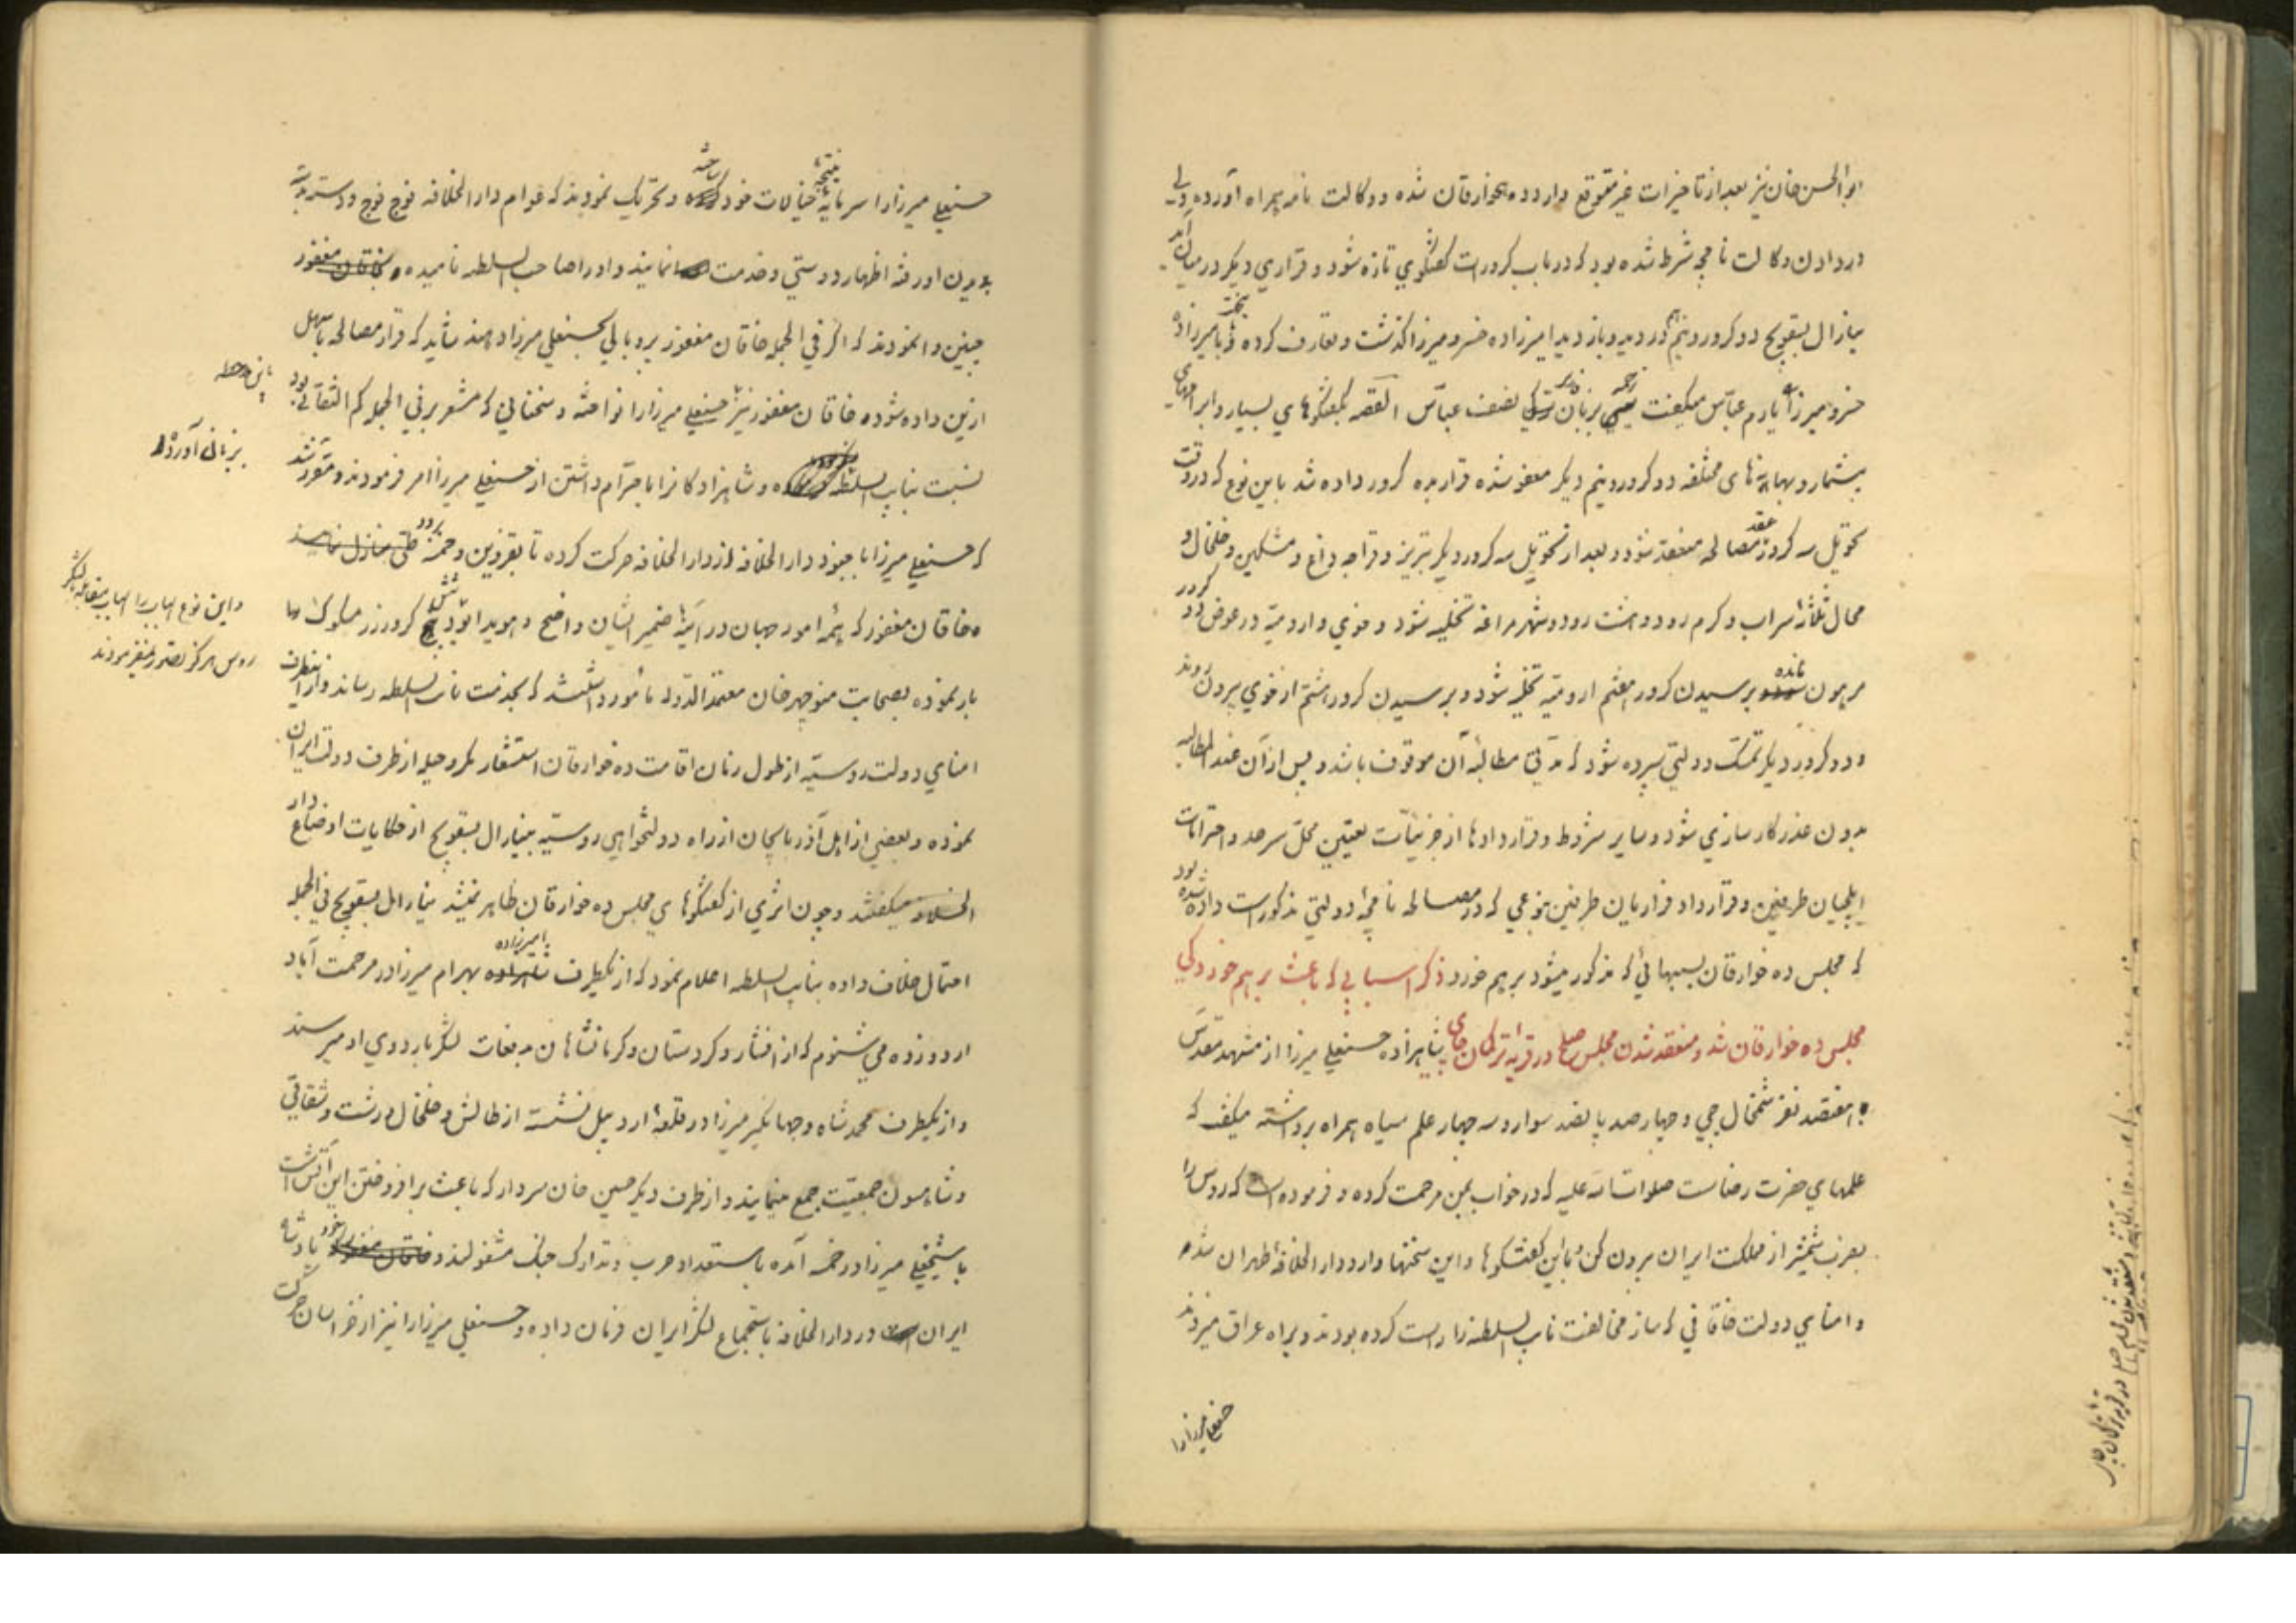 ابوالحسن خان نیز بعد از تاخیرات غیر متوقع وارد ده خوارقان شده ووکالت نامه همراه آورده ولی
در دادن وکالت نامچه شرط شده بود که در باب کرورات گفتگوی تازه شود و قراری دیگر در میان آید
ینارال بسقویچ دو کرور و نیم در دید و بازدید امیرزاده خسرو میرزا گذشت و تعارف کرده با میرزاده
خسرو میرزا یارم عباس میگفت بزبان ترکی نصف عباس القصه بگفتگوهای بسیار وابرامهای
بیشمار و بهانه های مختلفه دو کرور و نیم دیگر معفو شده قرار بده کرور داده شد باین نوع که در وقت
تحویل سه کرور عقد مصالحه منعقد شود و بعد از تحویل سه کرور دیگر تبریز و قراجه داغ و مشکین و خلخال و
محال ثلثه سراب و کرم رود و هشت رود و شهر مراغه تخلیه شود و خوی وارومیه در عوض دو کرور
مرهون مانده برسیدن کرور هفتم ارومیه تخلیه شود و برسیدن کرور هشتم از خوی بیرون روند
و دو کرور دیگر تمسک دولتی سپرده شود که مدتی مطالبه آن موقوف باشد و پس از آن عندالمطالبه
بدون عذر کارسازی شود و سایر شروط و قراردادها از جزئیات تعیین محل سرحد و احترامات
ایلچیان طرفین و قرارداد فراریان طرفین بنوعی که در مصالحه نامچه دولتی مذکور است داده شده بود
که مجلس ده خوارقان بسببهائی که مذکور میشود برهم خورد ذکر اسبابی که باعث برهم خوردگی
مجلس ده خوارقان شد و منعقد شدن مجلس صلح در قریه ترکمان چای شاهزاده حسنعلی میرزا از مشهد مقدس
با هفتصد نفر شمخال چی و چهارصد پانصد سوار و سه چهار علم سیاه همراه برداشته میگفت که
علمهای حضرت رضاست صلوات الله علیه که در خواب بمن مرحمت کرده و فرموده است که روس را
بضرب شمشیر از مملکت ایران بیرون کن و باین گفتگوها و این سخنها وارد دارالخلافه طهران شد
و امنای دولت خاقانی که ساز مخالفت نایب السلطنه را راست کرده بودند و براه عراق میزدند
حسنعلی میرزا را
حسنعلی میرزا را سرمایه نتیجه خیالات خود ساخته و تحریک نمودند که عوام دارالخلافه فوج فوج و دسته دسته
بدیدن او رفته اظهار دوستی و خدمت نمایند و او را صاحب السلطنه نامیده
چنین وانمودند که اگر فی الجمله خاقان مغفور پر و بالی بحسنعلی میرزا دهند شاید که قرار مصالحه باسهل
ازین داده شود خاقان مغفور نیز حسنعلی میرزا را نواخته و سخنانی که مشعر بر فی الجمله کم التفاتی بود
نسبت بنایب السلطنه و شاهزادگان را باحترام داشتن از حسنعلی میرزا امر فرمودند و مقرر شد
که حسنعلی میرزا با جنود دارالخلافه از دارالخلافه حرکت کرده تا بقزوین و خمسه برود
خاقان مغفور که همه امور جهان در آینه ضمیر ایشان واضح و هویدا بود شش کرور زر مسکوک
بار نموده بصحابت منوچهر خان معتمدالدوله مأمور داشتند که بخدمت نایب السلطنه رساند و از آنطرف
امنای دولت روسیه از طول زمان اقامت ده خوارقان استشعار مکر و حیله از طرف دولت ایران
نموده و بعضی از اهل آذربایجان از راه دولتخواهی روسیه بینارال بسقویچ از حکایات اوضاع دار
الخلافه میگفتند و چون اثری از گفتگوهای مجلس ده خوارقان ظاهر نمیشد ینارال بسقویچ فی الجمله
احتمال خلاف داده بنایب السلطنه اعلام نمود که از یکطرف امیرزاده بهرام میرزا در مرحمت آباد
اردو زده می شنوم که از افشار و کردستان و کرمانشاهان بدفعات لشکر باردوی او میرسند
و از یکطرف محمد شاه و جهانگیر میرزا در قلعه اردبیل نشسته از طالش و خلخال و رشت و شقاقی
و شاهسون جمعیت جمع مینمایند و از طرف دیگر حسین خان سردار که باعث برافروختن این آتش است
با شیخعلی میرزا در خمسه آمده باستعداد حرب و تدارک جنگ مشغولند و خود پادشاه
ایران در دارالخلافه باستجماع لشکر ایران فرمان داده و حسنعلی میرزا را نیز از خراسان حرکت
باین ملاحظه
بزبان آورده
و این نوع اسباب را اسباب مقابله لشکر
روس هرگز تصور نمیفرمودند